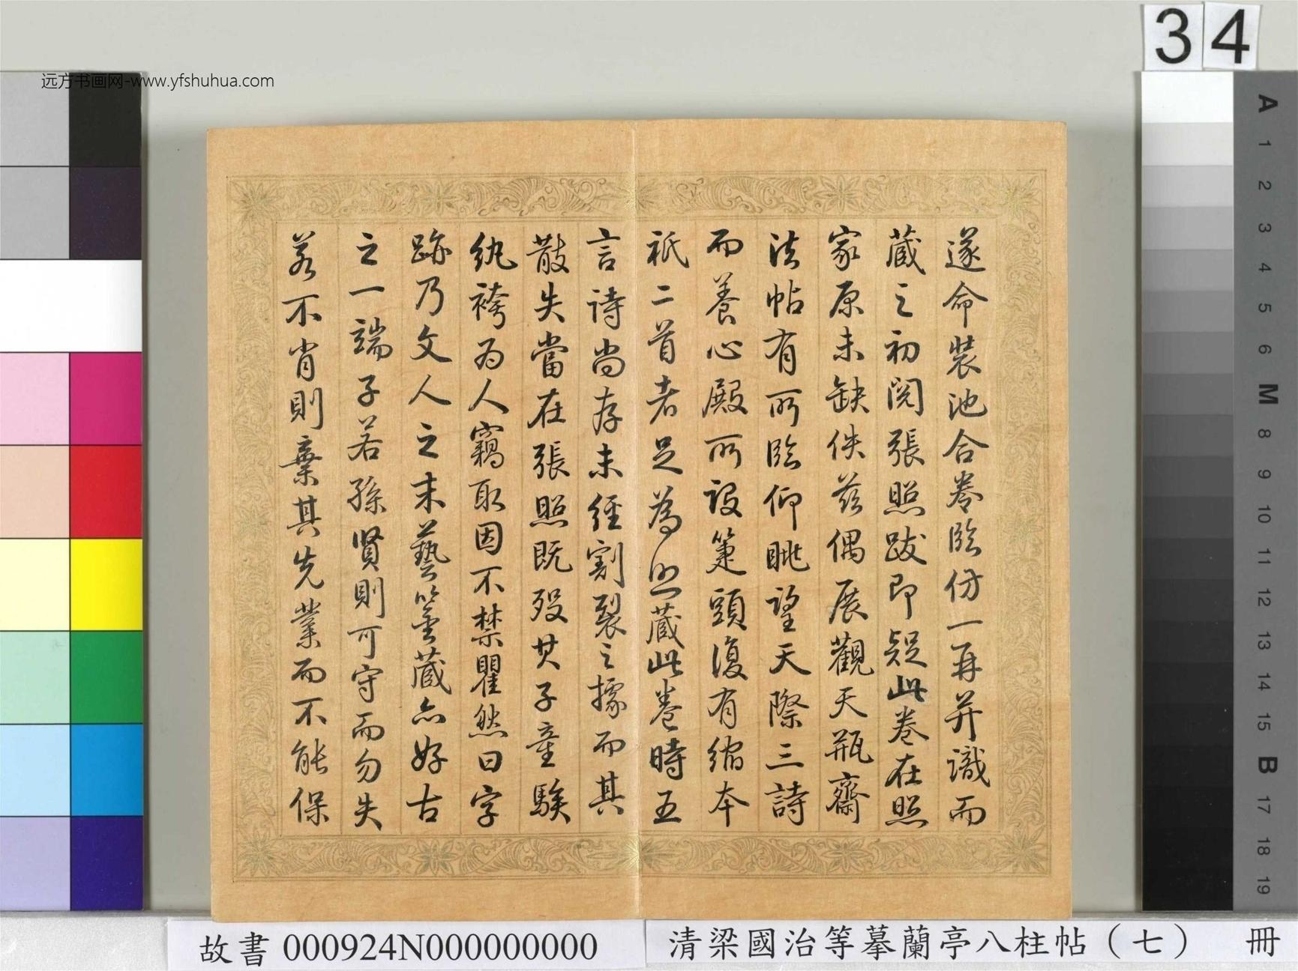 34
远方书画网-www.yfshuhua.com
遂命裝池合卷臨仿一再并識而
藏之初閱張照跋即疑此卷在照
家原未缺佚茲偶展觀天瓶齋
法帖有所臨仰眺望天際三詩
而養心殿所設箑頭復有縮本
祇二首者足為照藏此卷時五
言詩尚存未經割裂之據而其
散失當在張照既歿其子童騃
紈袴為人竊取因不禁瞿然曰字
跡乃文人之末藝鑒藏亦好古
之一端子若孫賢則可守而勿失
若不肖則棄其先業而不能保
A
1
2
3
4
5
6
M
8
9
10
11
12
13
14
15
B
17
18
19
故書 000924N000000000
清梁國治等摹蘭亭八柱帖（七） 冊